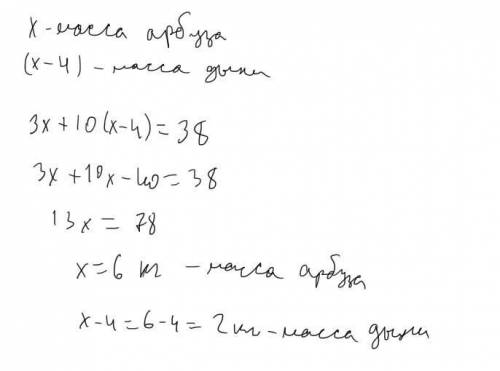 x - масса арбуза
(x-4) - масса дыни
3x+10(x-4)=38
3x+10x-40=38
13x = 78
x=6 кг - масса арбуза
x-4=6-4=2кг-масса дыни